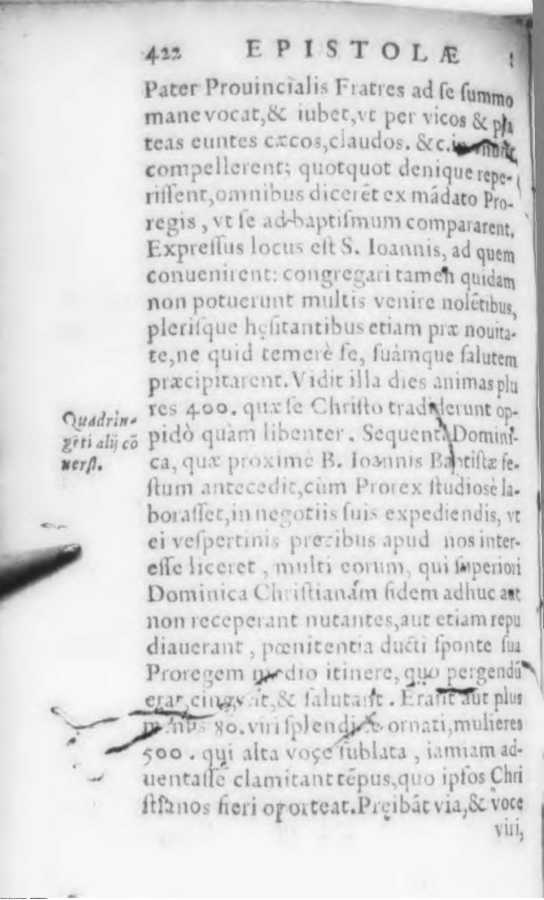 422 EPISTOLÆ
Pater Prouincialis Fratres ad ſe ſummo
mane vocat,& iubet,vt per vicos & pla
teas euntes cæcos,claudos. &c.
compellerent; quotquot denique repe-
riſſent,omnibus dicerẽt ex mãdato Pro-
regis, vt ſe ad baptiſmum compararent.
Expreſſus locus eſt S. Ioannis, ad quem
conuenirent: congregari tamen quidam
non potuerunt multis venire nolẽtibus,
pleriſque hęſitantibus etiam præ nouita-
te,ne quid temerè ſe, ſuámque ſalutem
præcipitarent. Vidit illa dies animas plu
res 400. quæ ſe Chriſto tradiderunt op-
pidò quàm libenter. Sequenti Domini-
ca, quæ proximè B. Ioannis Baptiſtæ fe-
ſtum antecedit,cùm Prorex ſtudioſè la-
boraſſet,in negotiis ſuis expediendis, vt
ei veſpertinis precibus apud nos inter-
eſſe liceret, multi eorum, qui ſuperiori
Dominica Chriſtianam fidem adhuc aut
non receperant nutantes,aut etiam repu
diauerant, pœnitentia ducti ſponte ſua
Proregem medio itinere, quo pergendũ
erat,cingunt,& ſalutant. Erant aut plus
minus 80. viri ſplendidè ornati,mulieres
500. qui alta voce ſublata, iamiam ad-
uentaſſe clamitant tẽpus,quo ipſos Chri
ſtianos fieri oporteat. Pręibãt via,& voce
viri,
Quadrin-
gẽti alij cõ
uerſi.